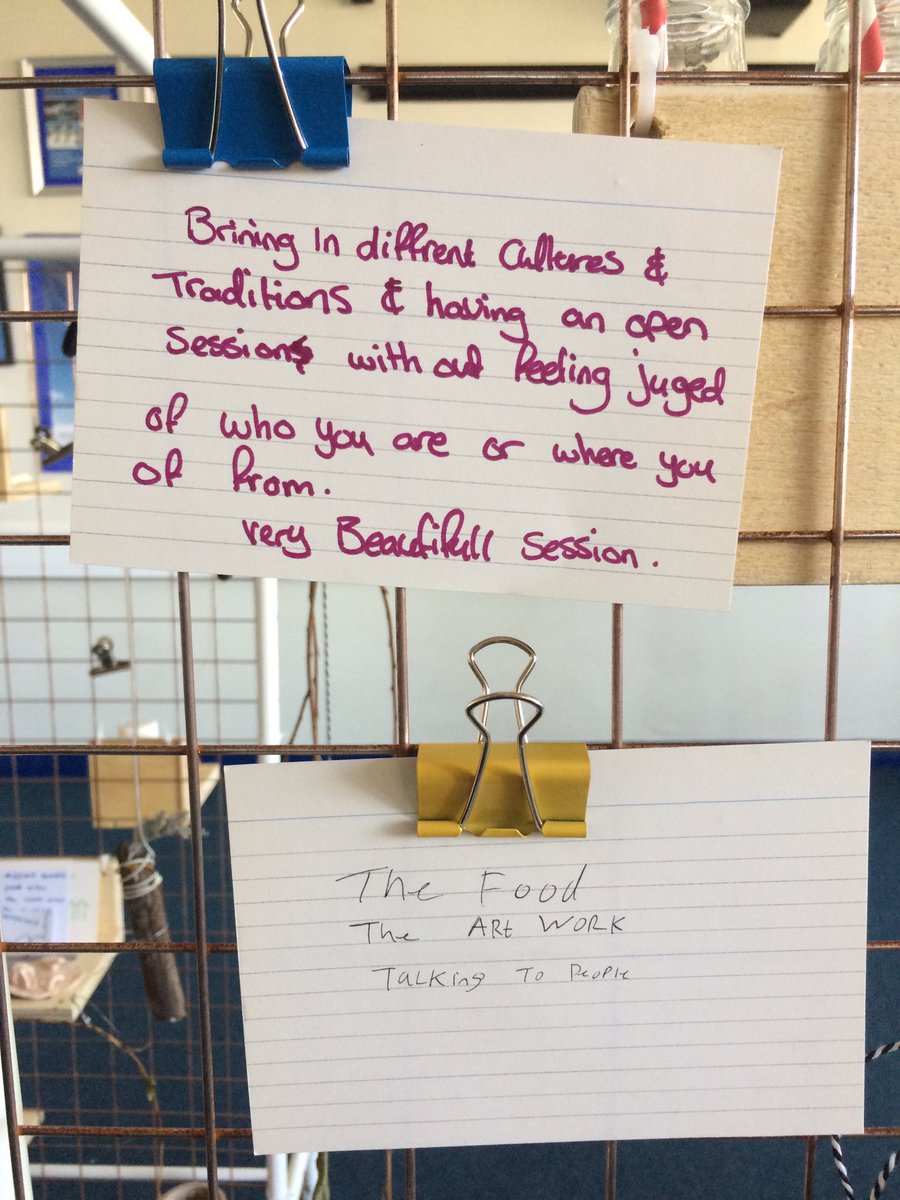 Brining In diffrent Cultures &
Traditions & having an open
Session with out feeling juged
of who you are or where you
of from.
very Beautifull Session.
The Food
The ARt WORK
Talking To People